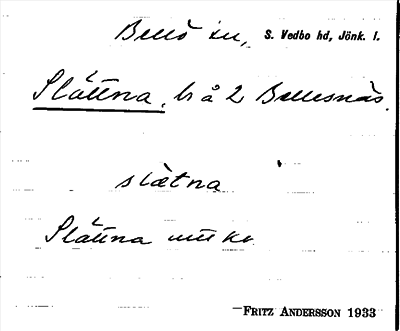 Bellö sn, S. Vedbo hd, Jönk. l.
Slättna, br å 2 Bellesnäs.
slätna
Slättna
FRITZ ANDERSSON 1933